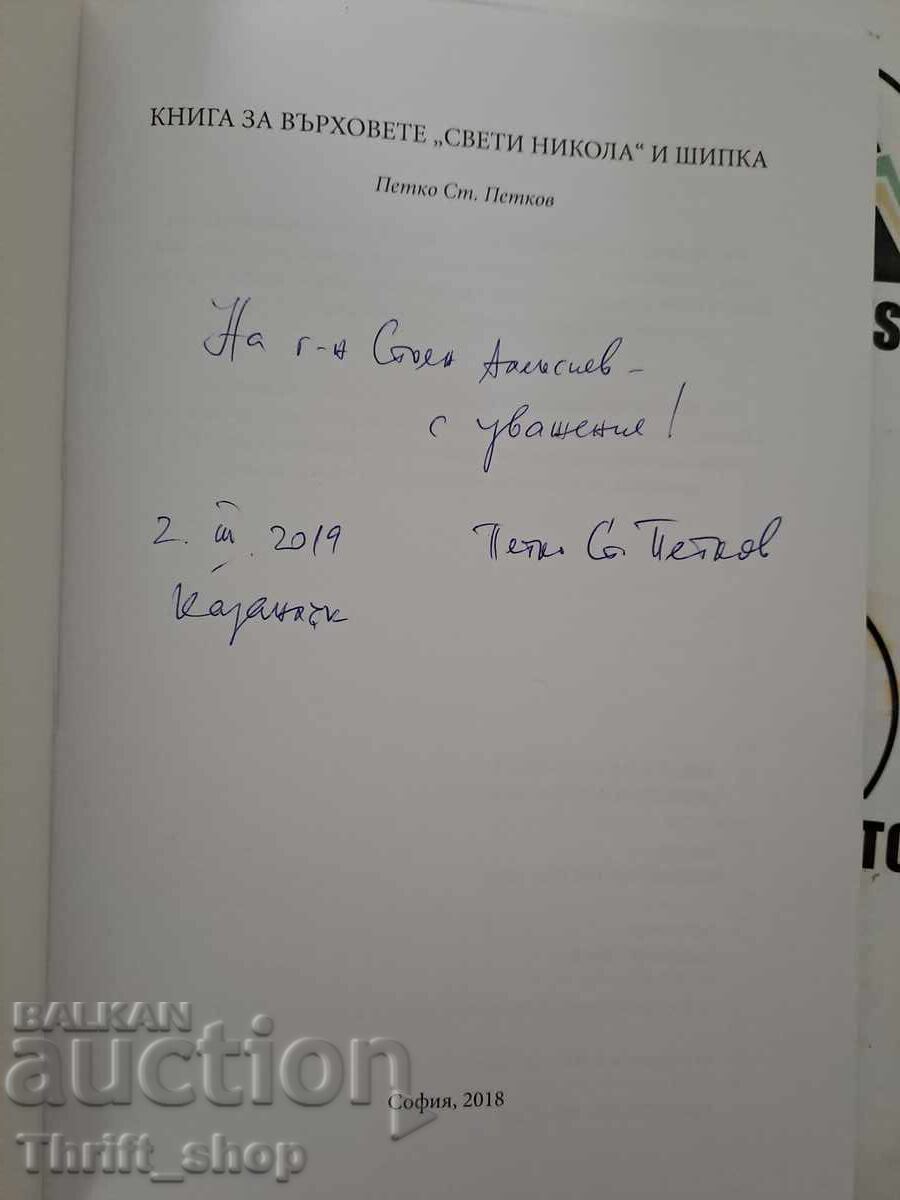 КНИГА ЗА ВЪРХОВЕТЕ „СВЕТИ НИКОЛА“ И ШИПКА
Петко Ст. Петков
На г-н Стоян –
с уважение!
2. III. 2019
Петко Ст. Петков
Казанлък
София, 2018
BALKAN
auction
Thrift_shop
S
TO